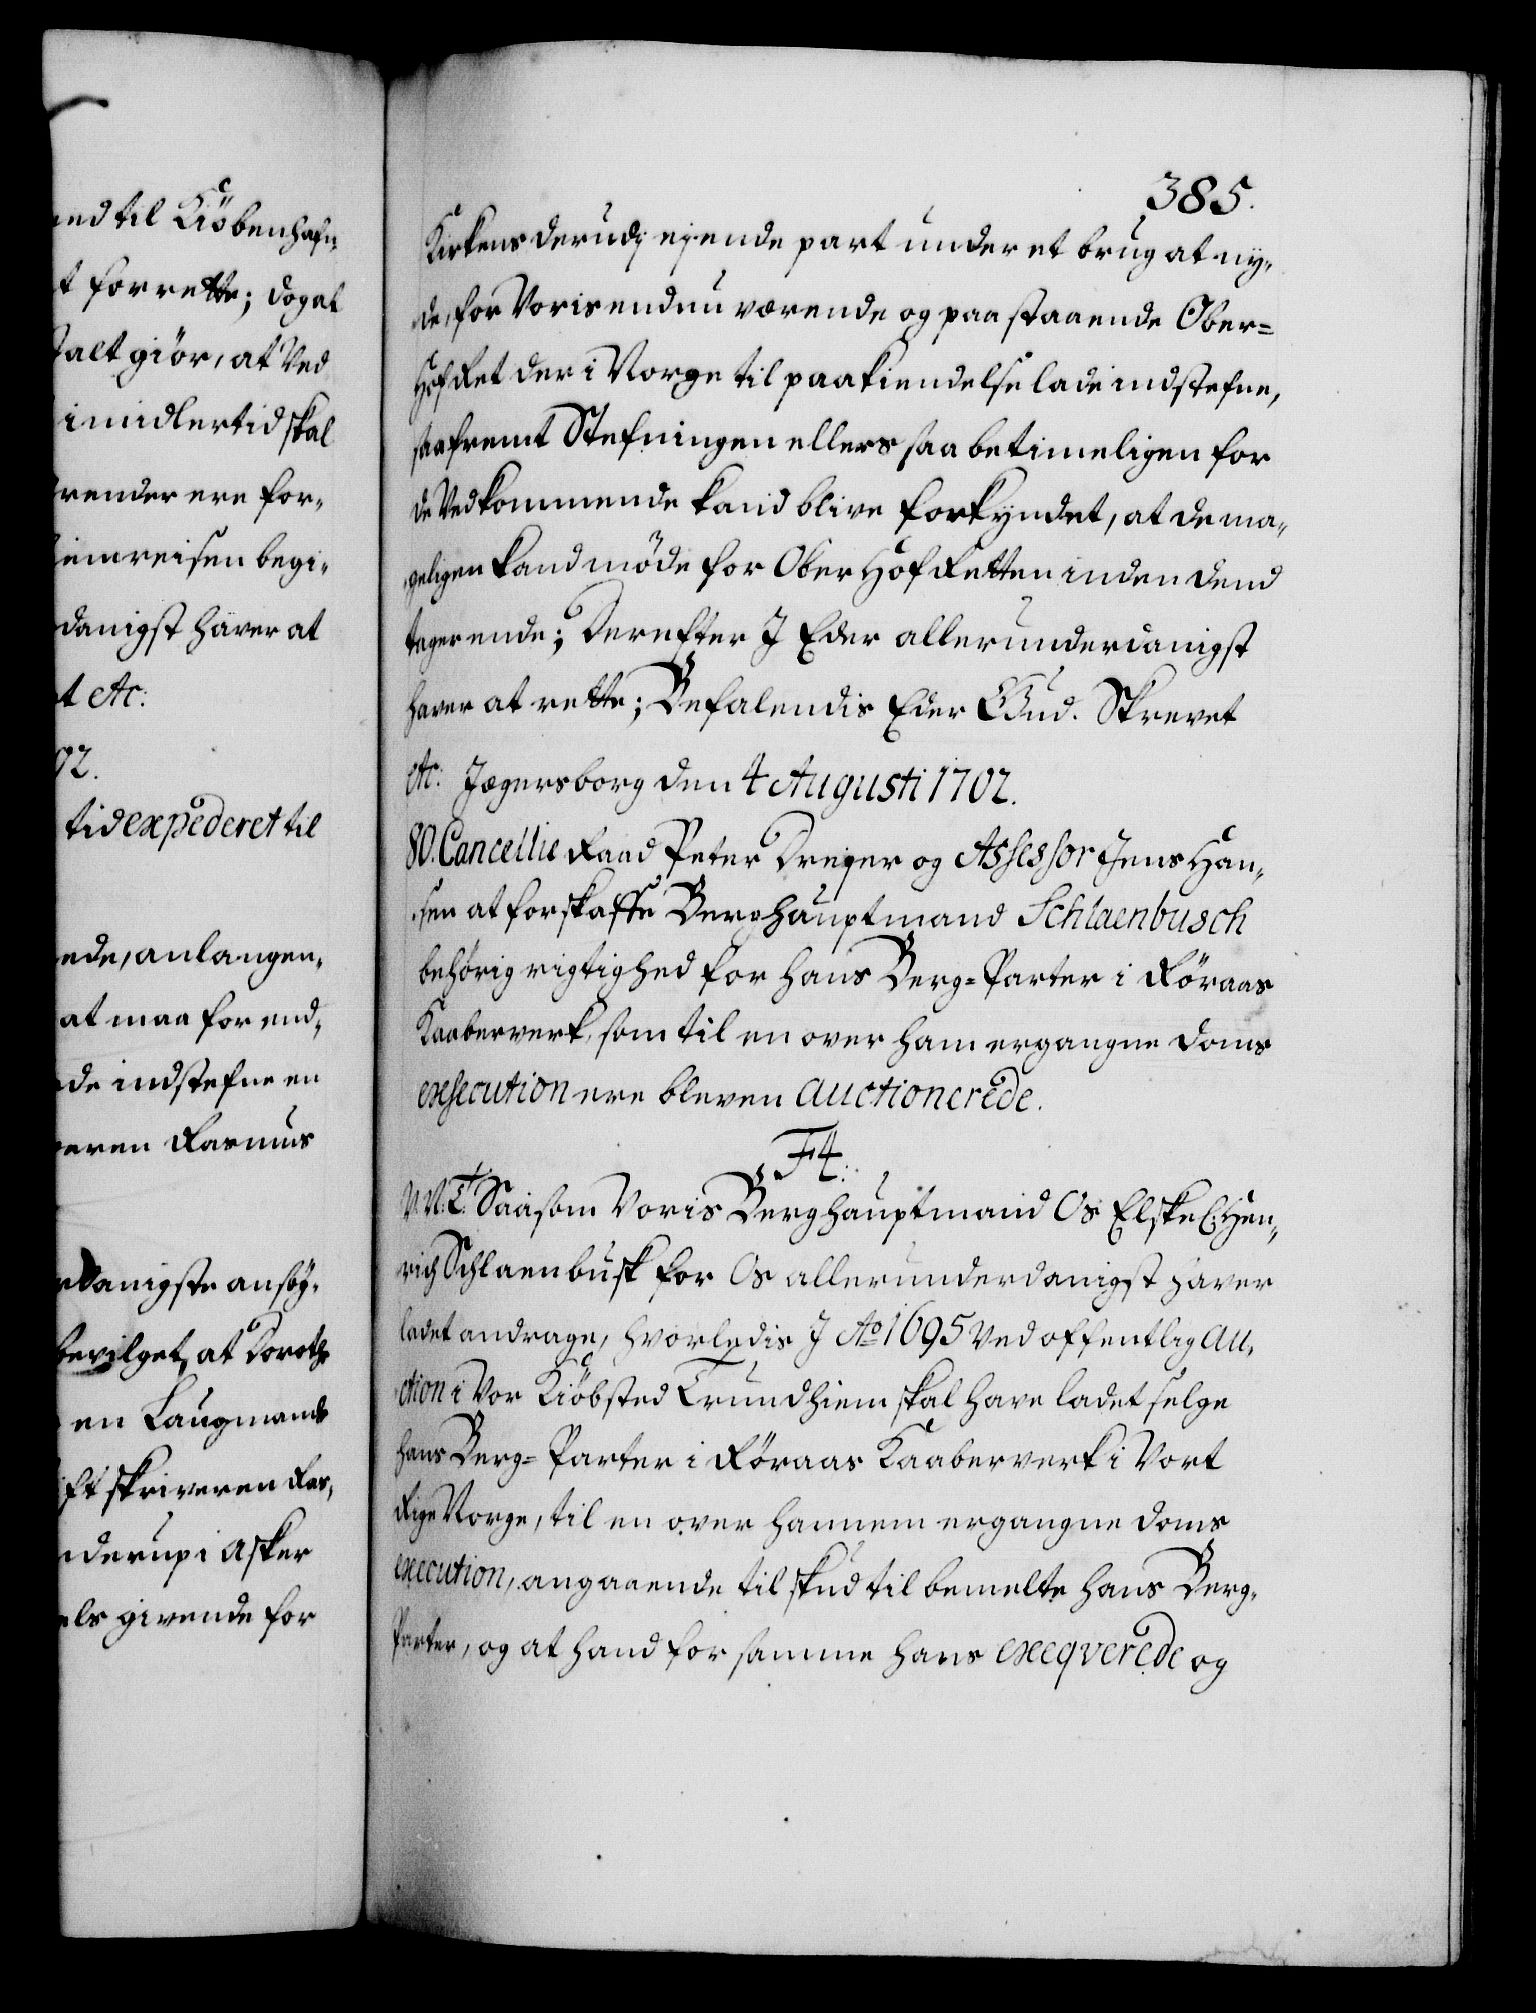 end til Kiöbenhafn,
t forrette; dog at
talt giör, at Ved
imidlertid skal
render ere for,
iemreisen begi,
danigst haver at
t etc:
92.
tid expederet til
ede, anlangen,
at maa for end,
de indstefne en
veren Rasmus
danigste ansög,
bevilget, at Doroth
en Laugmands
ft skriveren Ras,
derup i Asker
els givende for
385.
Kirkens derudj ejende part under et brug at ny,
de, for Voris endnu værende og paastaaende Ober=
HofRet der i Norge til paakiendelse lade indstefne,
saafremt Stefningen ellers saa betimeligen for
de Vedkommende kand blive forkyndet, at de ma,
geligen kand möde for Ober Hof Retten inden dend
tager ende; Derefter J Eder allerunderdanigst
haver at rette; Befalendis Eder Gud. Skrevet
etc: Jægersborg den 4 Augusti 1702.
80. Cancellie Raad Peter Dreyer og Assessor Jens Han,
sen at forskaffe Berghauptmand Schlaenbusch
behörig rigtighed for hans Berg=Parter i Röraas
Kaaberverk, som til en over ham ergangne doms
exsecution ere bleven auctionerede.
F4.
V. V. T. Saasom Voris Berghauptmand Os Elskel: Hen,
rich Schlaenbusk for Os allerunderdanigst haver
ladet andrage, hvorledis J Ao 1695 Ved offentlig au,
ction i Vor Kiöbsted Trundhiem skal have ladet selge
hans Berg=Parter i Röraas Kaaberverk i Vort
Rige Norge, til en over hannem ergangne doms
execution, angaaende tilskud til bemelte hans Berg,
Parter, og at hand for samme hans exeqverede og